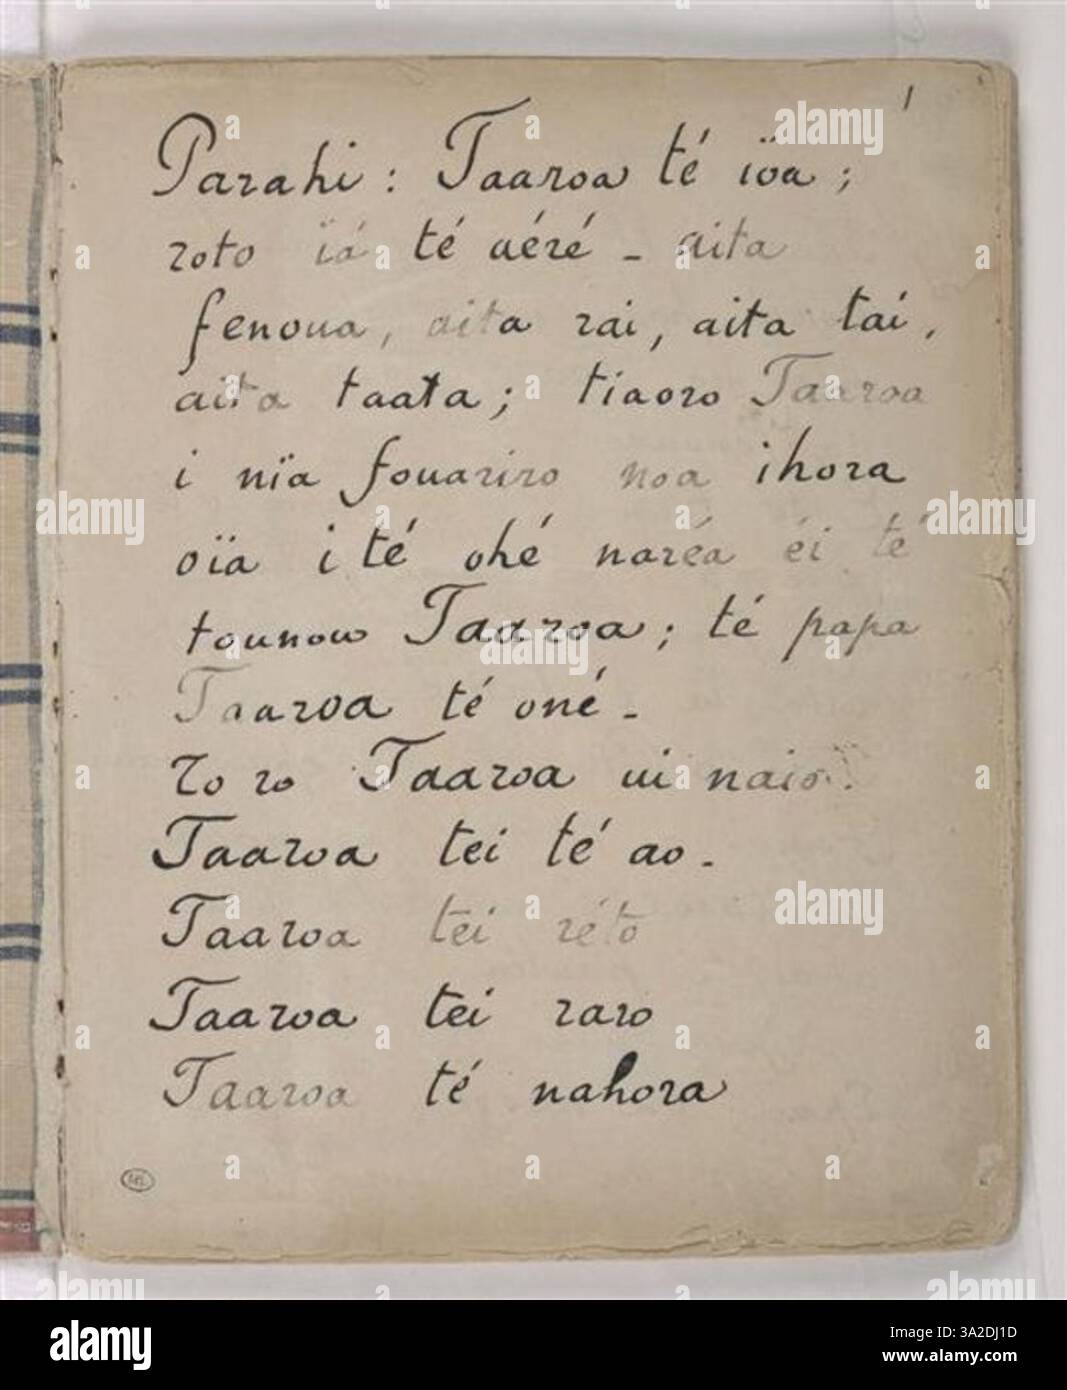 1
Parahi : Taaroa té ïoa ;
roto ïá té aéré - aita
fenoua, aita rai, aita tai,
aita taata ; tiaoro Taaroa
i nïa fouariro noa ihora
oïa i té ohé naréa éi té
tounou Taaroa ; té papa
Taaroa té oné -
To ro Taaroa ui naio.
Taaroa tei té ao -
Taaroa tei réto
Taaroa tei raro
Taaroa té nahora
alamy
Image ID: 3A2DJ1D
www.alamy.com